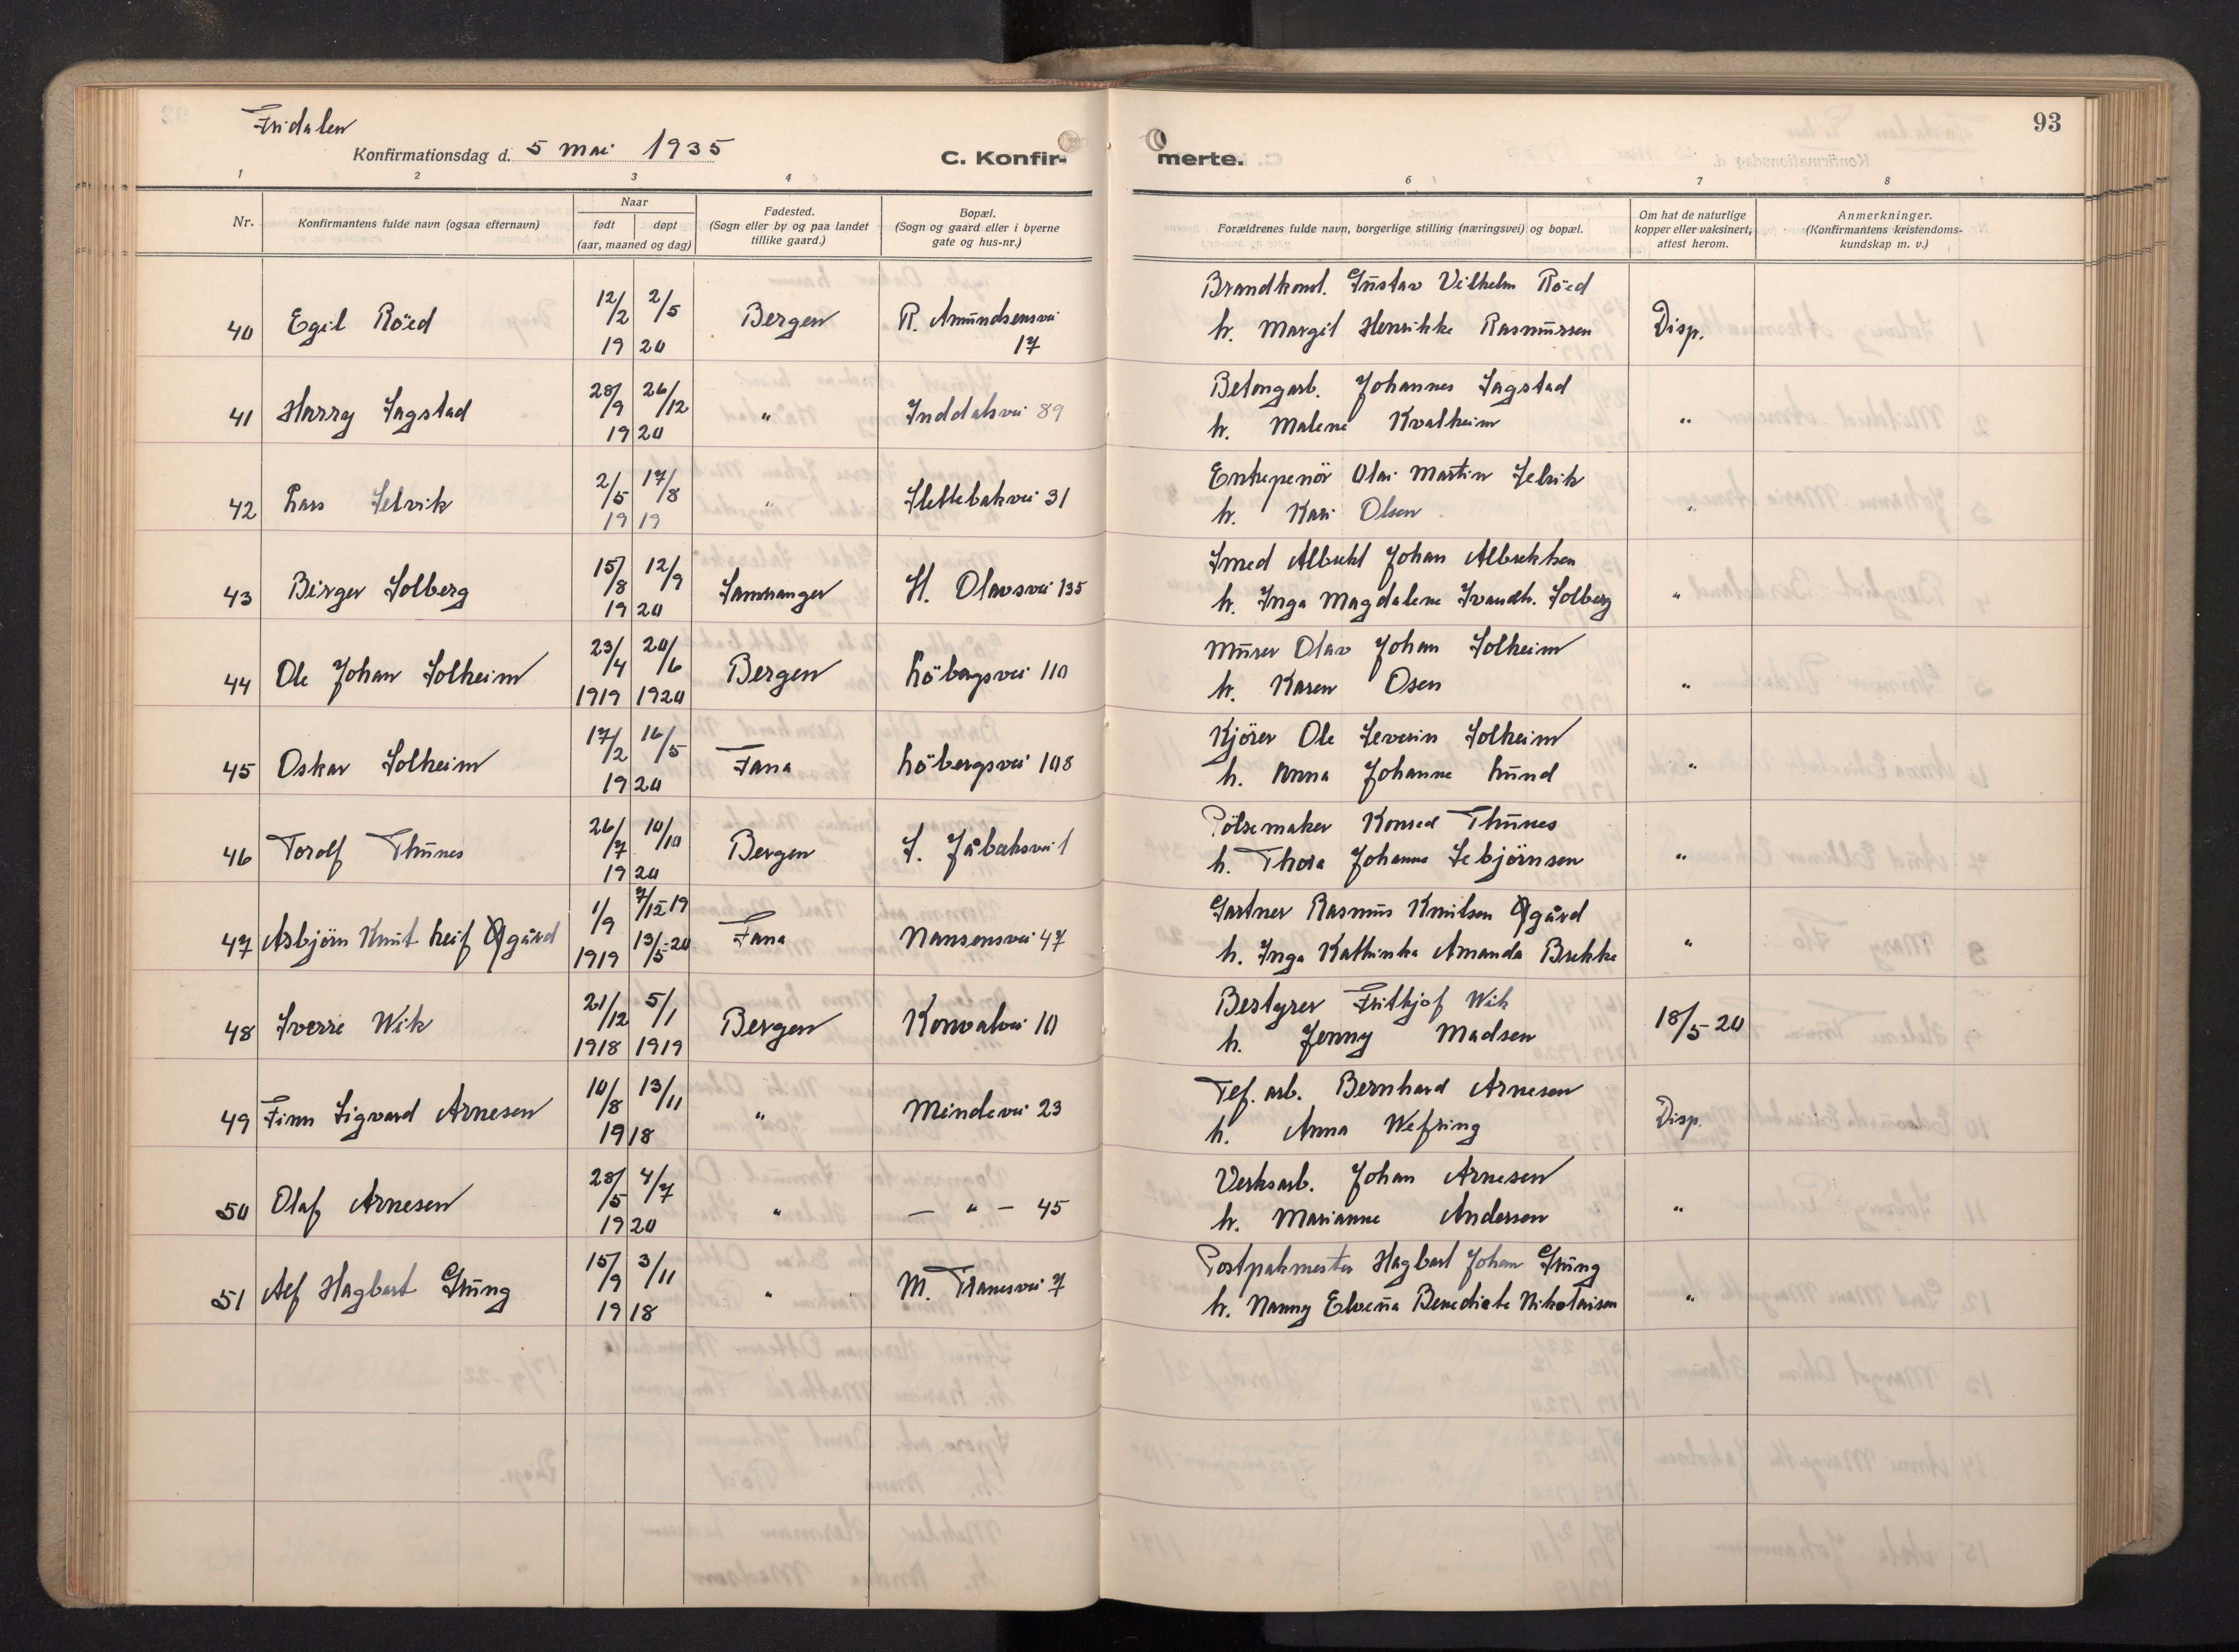 Fridalen
93
Konfirmationsdag d. 5 mai 1935
C. Konfir- merte.
1 2 3 4 6 7 8
Nr. Konfirmantens fulde navn (ogsaa efternavn) Naar født døpt (aar, maaned og dag) Fødested. (Sogn eller by og paa landet tillike gaard.) Bopæl. (Sogn og gaard eller i byerne gate og hus-nr.) Forældrenes fulde navn, borgerlige stilling (næringsvei) og bopæl. Om hat de naturlige kopper eller vaksinert, attest herom. Anmerkninger. (Konfirmantens kristendoms-kundskap m. v.)
40 Egil Röed 12/2 2/5 1920 Bergen R. Amundsensvei 17 Brandkonst. Gustav Vilhelm Röed
h. Margit Henrikke Rasmussen Disp.
41 Harry Sagstad 28/9 26/12 1920 " Inddalsvei 89 Betongarb. Johannes Sagstad
h. Malene Kvalheim "
42 Lars Selvik 2/5 17/8 1919 " Slettebakvei 31 Entrepenör Olai Martin Selvik
h. Kari Olsen "
43 Birger Solberg 15/8 12/9 1920 Samnanger H. Olavsvei 135 Smed Albrekt Johan Albrektsen
h. Inga Magdalene Ivandh. Solberg "
44 Ole Johan Solheim 23/4 20/6 1919 1920 Bergen Löbergsvei 110 Murer Olav Johan Solheim
h. Karen Osen "
45 Oskar Solheim 17/2 16/5 1920 Fana Löbergsvei 108 Kjörer Ole Severin Solheim
h. Anna Johanne Lund "
46 Torolf Thunes 26/7 10/10 1920 Bergen S. Jåbæksvei 1 Pölsemaker Konrad Thunes
h. Thora Johanne Sebjörnsen "
47 Asbjörn Knut Leif Ågård 1/9 1919 7/12-19 13/5-20 Fana Nansensvei 47 Gartner Rasmus Knutsen Ågård
h. Inga Kathinka Amanda Brekke "
48 Sverre Wik 21/12 5/1 1918 1919 Bergen Konvalvei 10 Bestyrer Frithjof Wik
h. Jenny Madsen 18/5-20
49 Finn Sigvard Arnesen 10/8 13/11 1918 " Mindevei 23 Tef. arb. Bernhard Arnesen
h. Anna Wefring Disp.
50 Olaf Arnesen 28/5 4/7 1920 " — " — 45 Verksarb. Johan Arnesen
h. Marianne Andersen "
51 Alf Hagbart Grung 15/9 3/11 1918 " M. Tranesvei 7 Postpakmester Hagbart Johan Grung
h. Nanny Elvina Benedicte Nikolaisen "